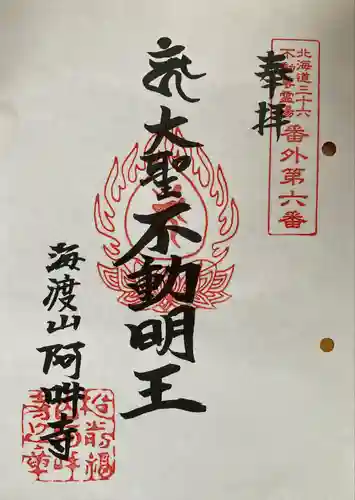 奉拝
北海道三十六
不動尊霊場
番外第六番
大聖不動明王
海渡山阿吽寺